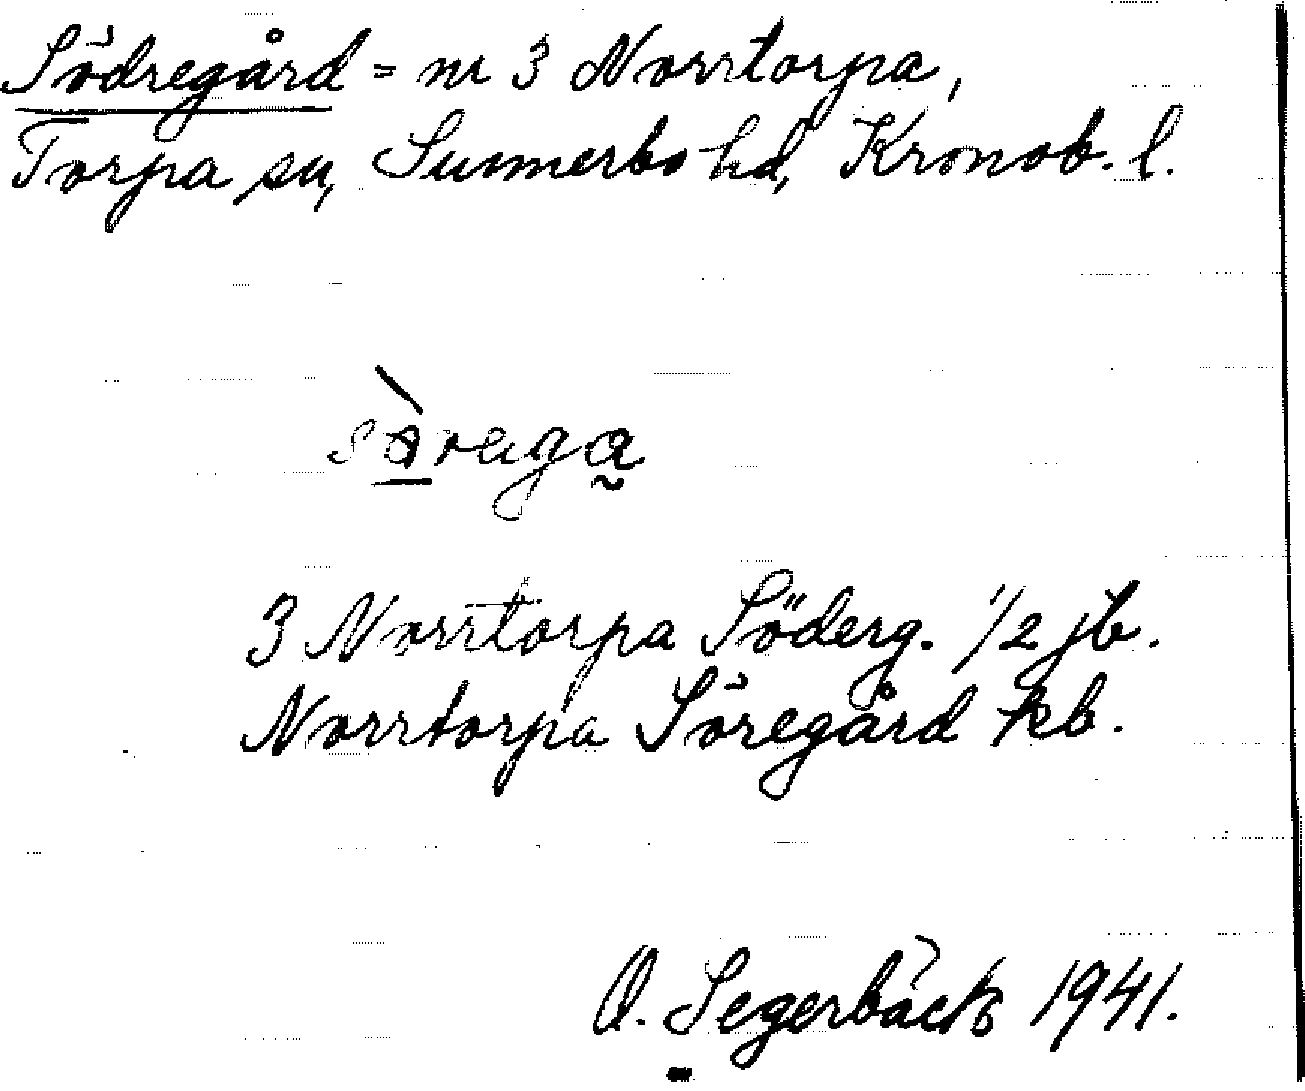 Södregård = nr 3 Norrtorpa,
Torpa sn, Sunnerbo hd, Kronob. l.
3 Norrtorpa Söderg. 1/2 jb.
Norrtorpa Söregård kb.
O. Segerbäck 1941.